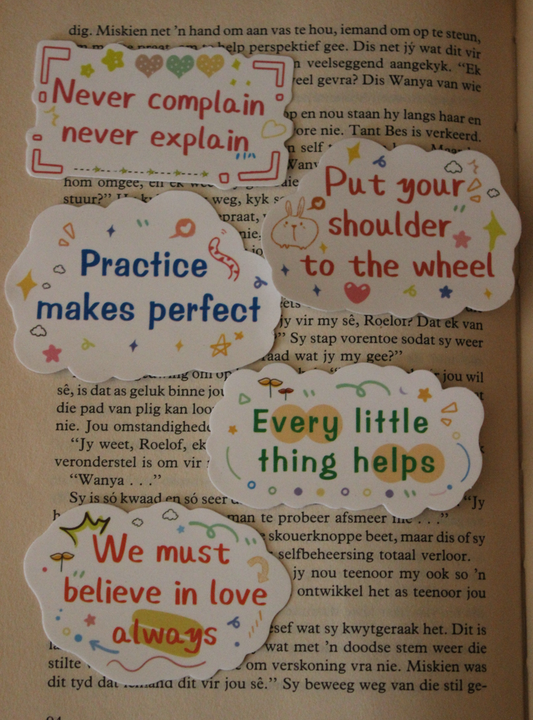 dig. Miskien net 'n hand om aan vas te hou, iemand om op te steun,
help perspektief gee. Dis net jý wat dit vir
veelseggend aangekyk. "Ek
veel gevra? Dis Wanya van wie
Never complain
never explain
op en nou staan hy langs haar en
nie. Tant Bes is verkeerd.
hom omgee, en ek
stuur?"
weg, kyk
Put your
shoulder
to the wheel
Practice
makes perfect
jy vir my sê, Roelof? Dat ek van
Sy stap vorentoe sodat sy weer
raad wat jy my gee?"
jou wil
sê, is dat as geluk binne jou
die pad van plig kan
nie. Jou omstandighede
"Jy weet, Roelof, ek
veronderstel is om vir
"Wanya . . ."
Sy is só kwaad en só seer
"Jy
Every little
thing helps
man te probeer afsmeer
skouerknoppe beet, maar dis of sy
selfbeheersing totaal verloor.
jy nou teenoor my ook so 'n
ontwikkel het as teenoor jou
We must
believe in love
always
wat sy kwytgeraak het. Dit is
wat met 'n doodse stem weer die
stilte
om verskoning vra nie. Miskien was
dit tyd dat iemand dit vir jou sê." Sy beweeg weg van die stil ge-